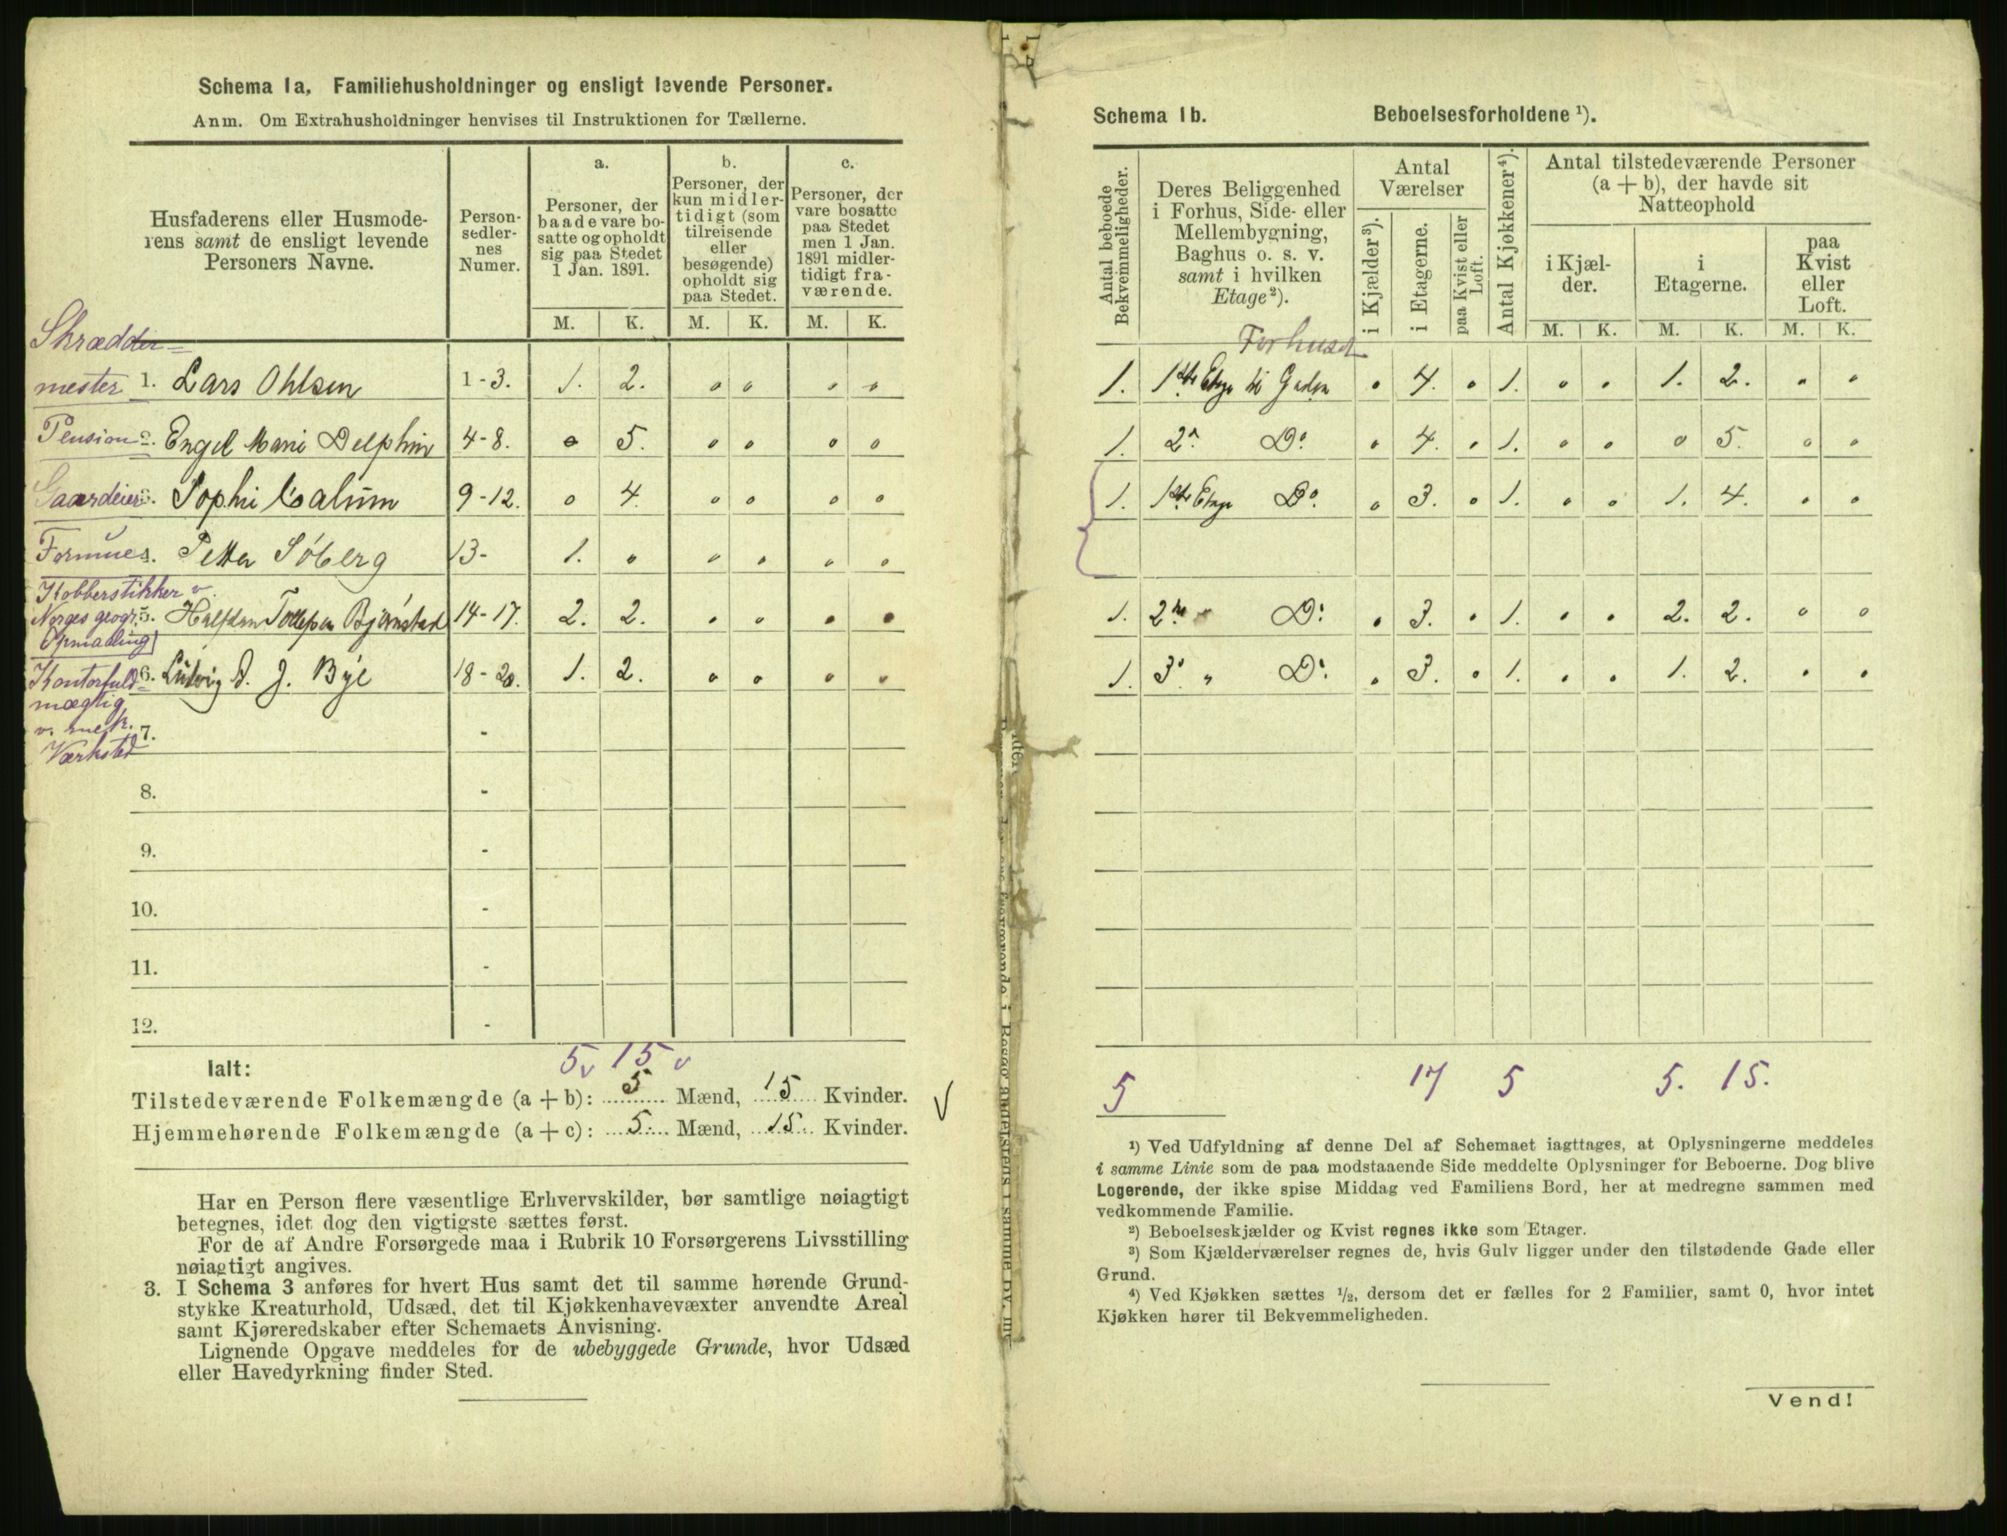 Schema 1a. Familiehusholdninger og ensligt levende Personer.
Anm. Om Extrahusholdninger henvises til Instruktionen for Tællerne.
Husfaderens eller Husmode-
rens samt de ensligt levende
Personers Navne.
Person-
sedler-
nes
Numer.
a.
Personer, der
baade vare bo-
satte og opholdt
sig paa Stedet
1 Jan. 1891.
b.
Personer, der
kun midler-
tidigt (som
tilreisende
eller
besøgende)
opholdt sig
paa Stedet.
c.
Personer, der
vare bosatte
paa Stedet
men 1 Jan.
1891 midler-
tidigt fra-
værende.
M. K. M. K. M. K.
Skrædder=
mester 1. Lars Ohlsen 1-3. 1. 2. o o o o
Pension 2. Engel Marie Delphin 4-8. o 5. o o o o
Gaardeier 3. Sophie 9-12. o 4. o o o o
Formues 4. Petter Söberg 13- 1. o o o o o
Kobberstikker v.
Norges geogr. 5. Halfdan Tollefsen Bjørnstad 14-17. 2. 2. o o o o
Opmaaling
Kontorfuld= 6. Ludvig A. J. Bye 18-20. 1. 2. o o o o
mægtig
v. mek. 7. -
Værksted
8. -
9. -
10. -
11. -
12. -
5 v 15 v
Ialt:
Tilstedeværende Folkemængde (a + b): 5 Mænd, 15 Kvinder. V
Hjemmehørende Folkemængde (a + c): 5. Mænd, 15. Kvinder.
Har en Person flere væsentlige Erhvervskilder, bør samtlige nøiagtigt
betegnes, idet dog den vigtigste sættes først.
For de af Andre Forsørgede maa i Rubrik 10 Forsørgerens Livsstilling
nøiagtigt angives.
3. I Schema 3 anføres for hvert Hus samt det til samme hørende Grund-
stykke Kreaturhold, Udsæd, det til Kjøkkenhavevæxter anvendte Areal
samt Kjøreredskaber efter Schemaets Anvisning.
Lignende Opgave meddeles for de ubebyggede Grunde, hvor Udsæd
eller Havedyrkning finder Sted.
Schema 1b. Beboelsesforholdene ¹).
Antal beboede
Bekvemmeligheder.
Deres Beliggenhed
i Forhus, Side- eller
Mellembygning,
Baghus o. s. v.
samt i hvilken
Etage ²).
Antal
Værelser
i Kjælder ³).
i Etagerne.
paa Kvist eller
Loft.
Antal Kjøkkener ⁴).
Antal tilstedeværende Personer
(a + b), der havde sit
Natteophold
i Kjæl-
der.
i
Etagerne.
paa
Kvist
eller
Loft.
M. K. M. K. M. K.
Forhuset
1. 1ste Etage til Gaden o 4. o 1. o o 1. 2. o o
1. 2n Do. o 4. o 1. o o o 5. o o
1. 1ste Etage Do. o 3. o 1. o o 1. 4. o o
1. 2n " Do. o 3. o 1. o o 2. 2. o o
1. 3. " Do. o 3. o 1. o o 1. 2. o o
5 17 5 5. 15.
¹) Ved Udfyldning af denne Del af Schemaet iagttages, at Oplysningerne meddeles
i samme Linie som de paa modstaaende Side meddelte Oplysninger for Beboerne. Dog blive
Logerende, der ikke spise Middag ved Familiens Bord, her at medregne sammen med
vedkommende Familie.
²) Beboelseskjælder og Kvist regnes ikke som Etager.
³) Som Kjælderværelser regnes de, hvis Gulv ligger under den tilstødende Gade eller
Grund.
⁴) Ved Kjøkken sættes ¹/₂, dersom det er fælles for 2 Familier, samt 0, hvor intet
Kjøkken hører til Bekvemmeligheden.
Vend!